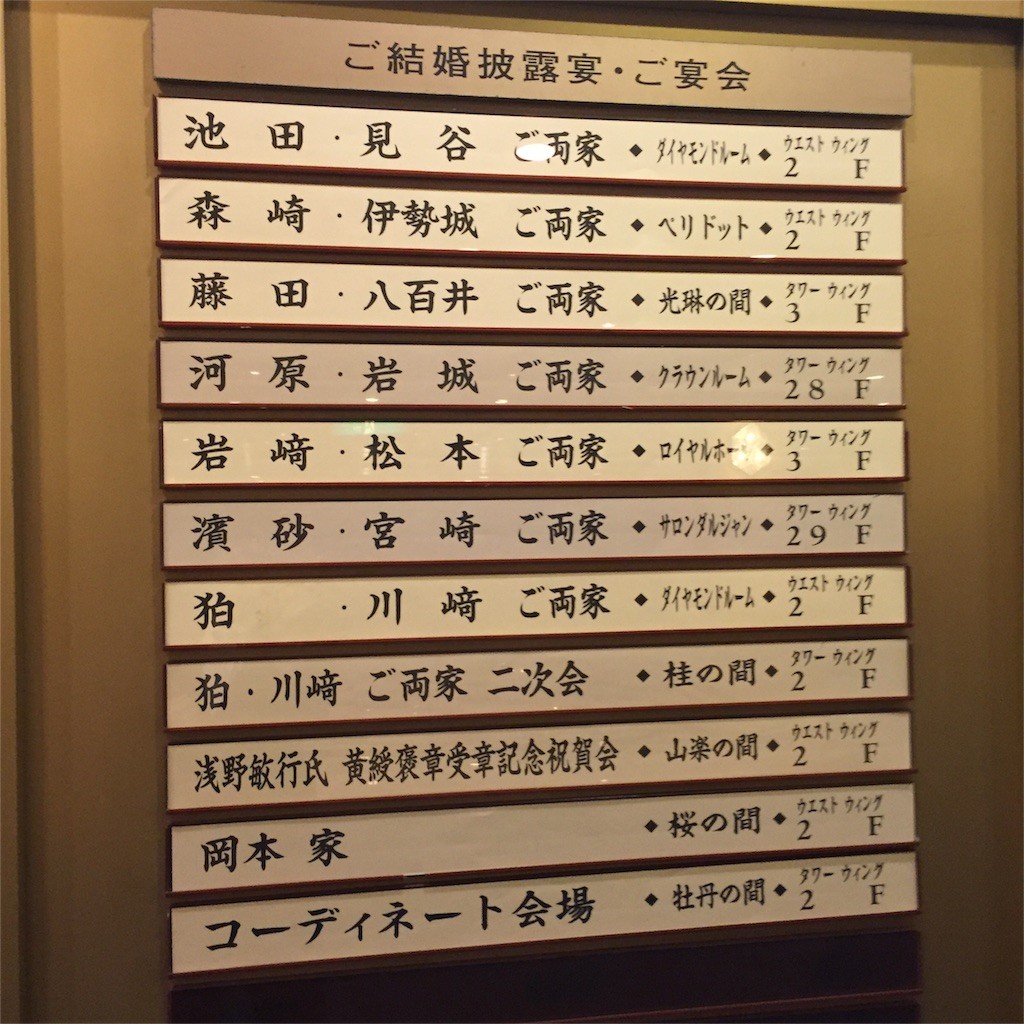 ご結婚披露宴・ご宴会
池田・見谷 ご両家 ◆ダイヤモンドルーム◆ ウエスト ウィング 2F
森崎・伊勢城 ご両家 ◆ペリドット◆ ウエスト ウィング 2F
藤田・八百井 ご両家 ◆光琳の間◆ タワー ウィング 3F
河原・岩城 ご両家 ◆クラウンルーム◆ タワー ウィング 28F
岩﨑・松本 ご両家 ◆ロイヤルホール◆ タワー ウィング 3F
濱砂・宮崎 ご両家 ◆サロンダルジャン◆ タワー ウィング 29F
狛・川﨑 ご両家 ◆ダイヤモンドルーム◆ ウエスト ウィング 2F
狛・川﨑 ご両家 二次会 ◆桂の間◆ タワー ウィング 2F
浅野敏行氏 黄綬褒章受章記念祝賀会 ◆山楽の間◆ ウエスト ウィング 2F
岡本家 ◆桜の間◆ ウエスト ウィング 2F
コーディネート会場 ◆牡丹の間◆ タワー ウィング 2F